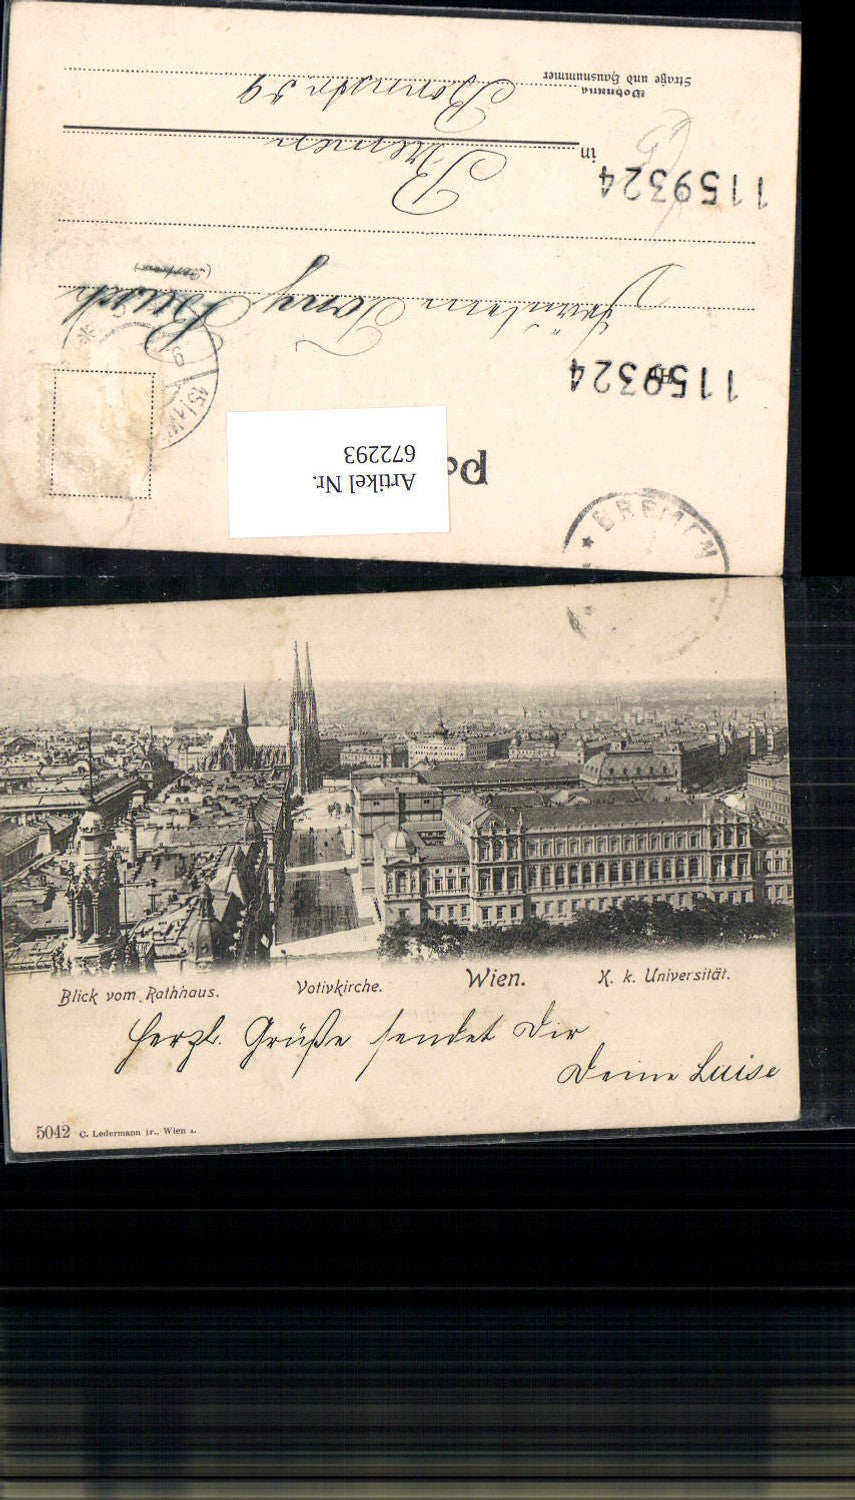 Po
Artikel Nr.
672293
BREMEN
1159324
An
Fräulein Tony Busch
1159324
in
Bremen
Wohnung
Straße und Hausnummer
Bonnstr 59
Blick vom Rathhaus.
Votivkirche.
Wien.
K. k. Universität.
Herzl. Grüße sendet Dir
Deine Luise
5042 C. Ledermann jr., Wien I.